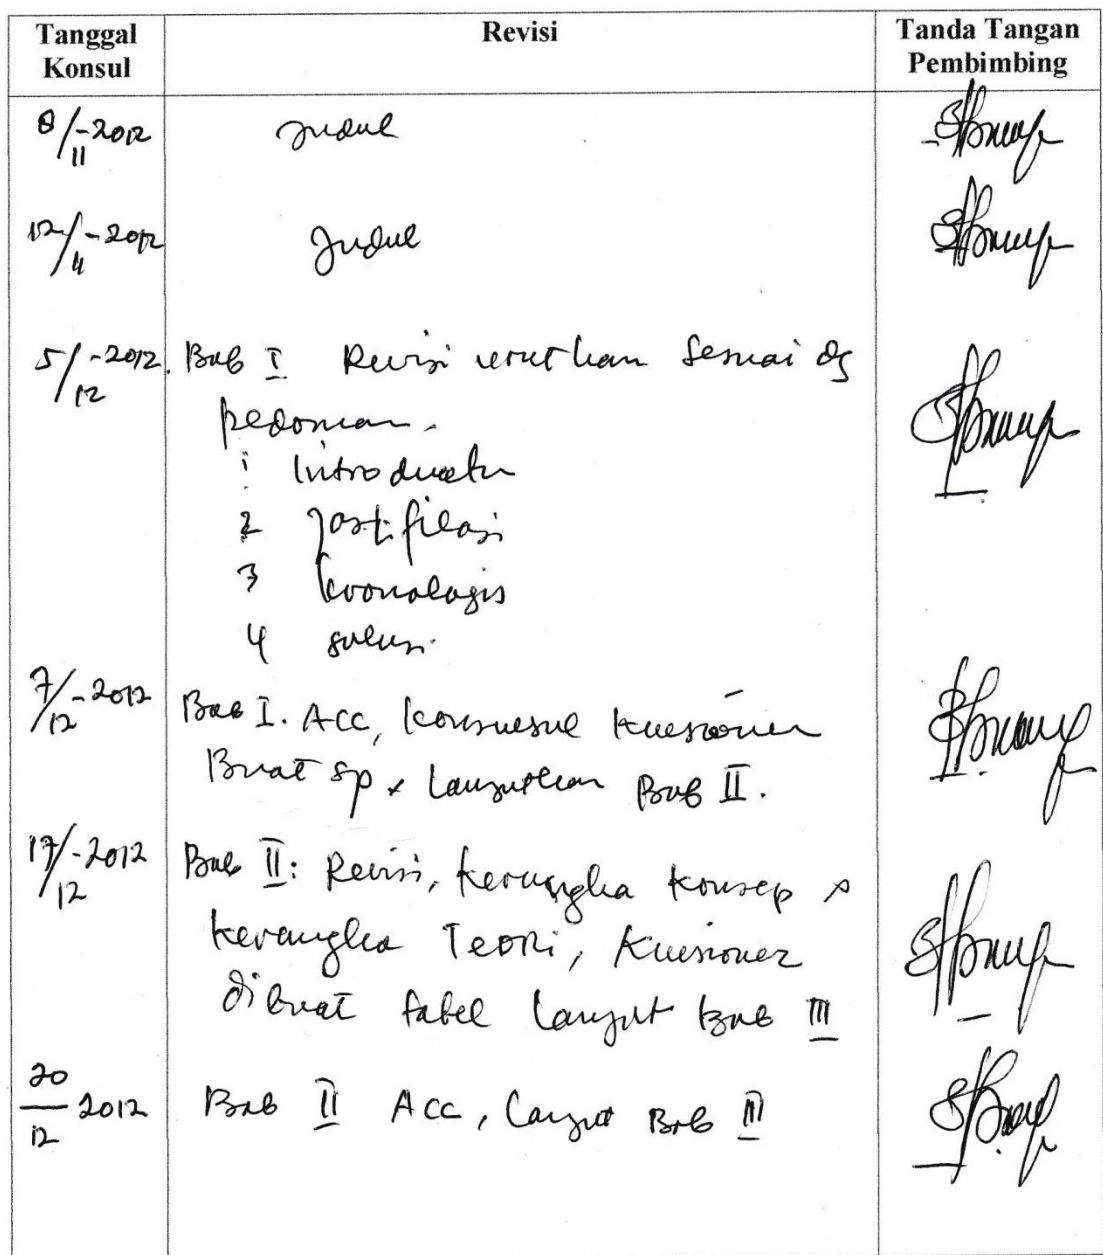 Tanggal Konsul
Revisi
Tanda Tangan Pembimbing
8/11-2012
Judul
12/11-2012
Judul
5/12-2012. Bab I Revisi urutkan sesuai dg
pedoman.
1 Introduction
2 Justifikasi
3 kronologis
4 solusi.
7/12-2012
Bab I. ACC, Kuesioner
Buat sp & Lanjutkan Bab II.
17/12-2012
Bab II: Revisi, kerangka konsep &
kerangka Teori, Kuesioner
dibuat tabel Lanjut Bab III
20/12 2012
Bab II ACC, Lanjut Bab III